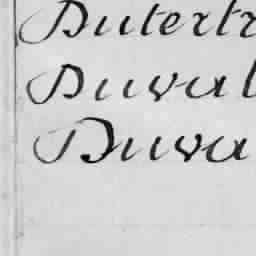 Dutertr
Duval
Duva